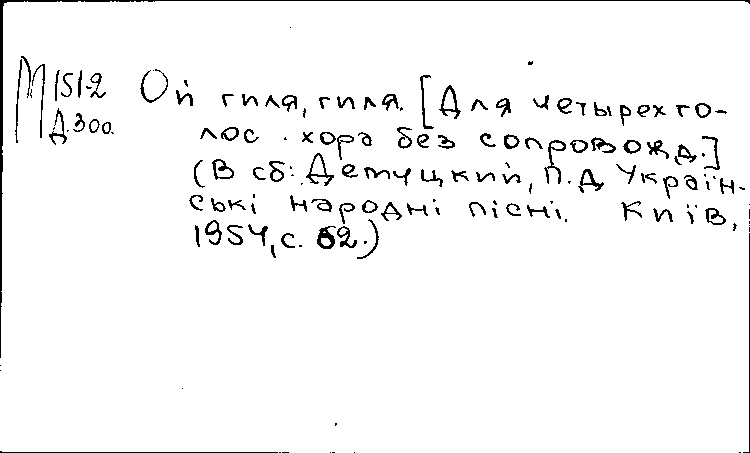 М 151-2 Ой гиля, гиля. [Для четырехго-
Д.300 лос. хора без сопровожд.]
(В сб: Демуцкий, П.Д Україн-
ські народні пісні. Київ,
1954, с. 62.)